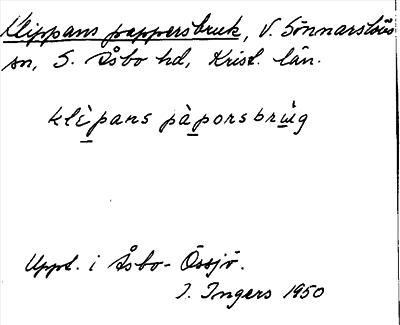 Klippans pappersbruk, V. Sönnarslövs
sn, S. Åsbo hd, Krist. län.
klìpans pàporsbrùg
Uppt. i Åsbo-Össjö.
I. Ingers 1950